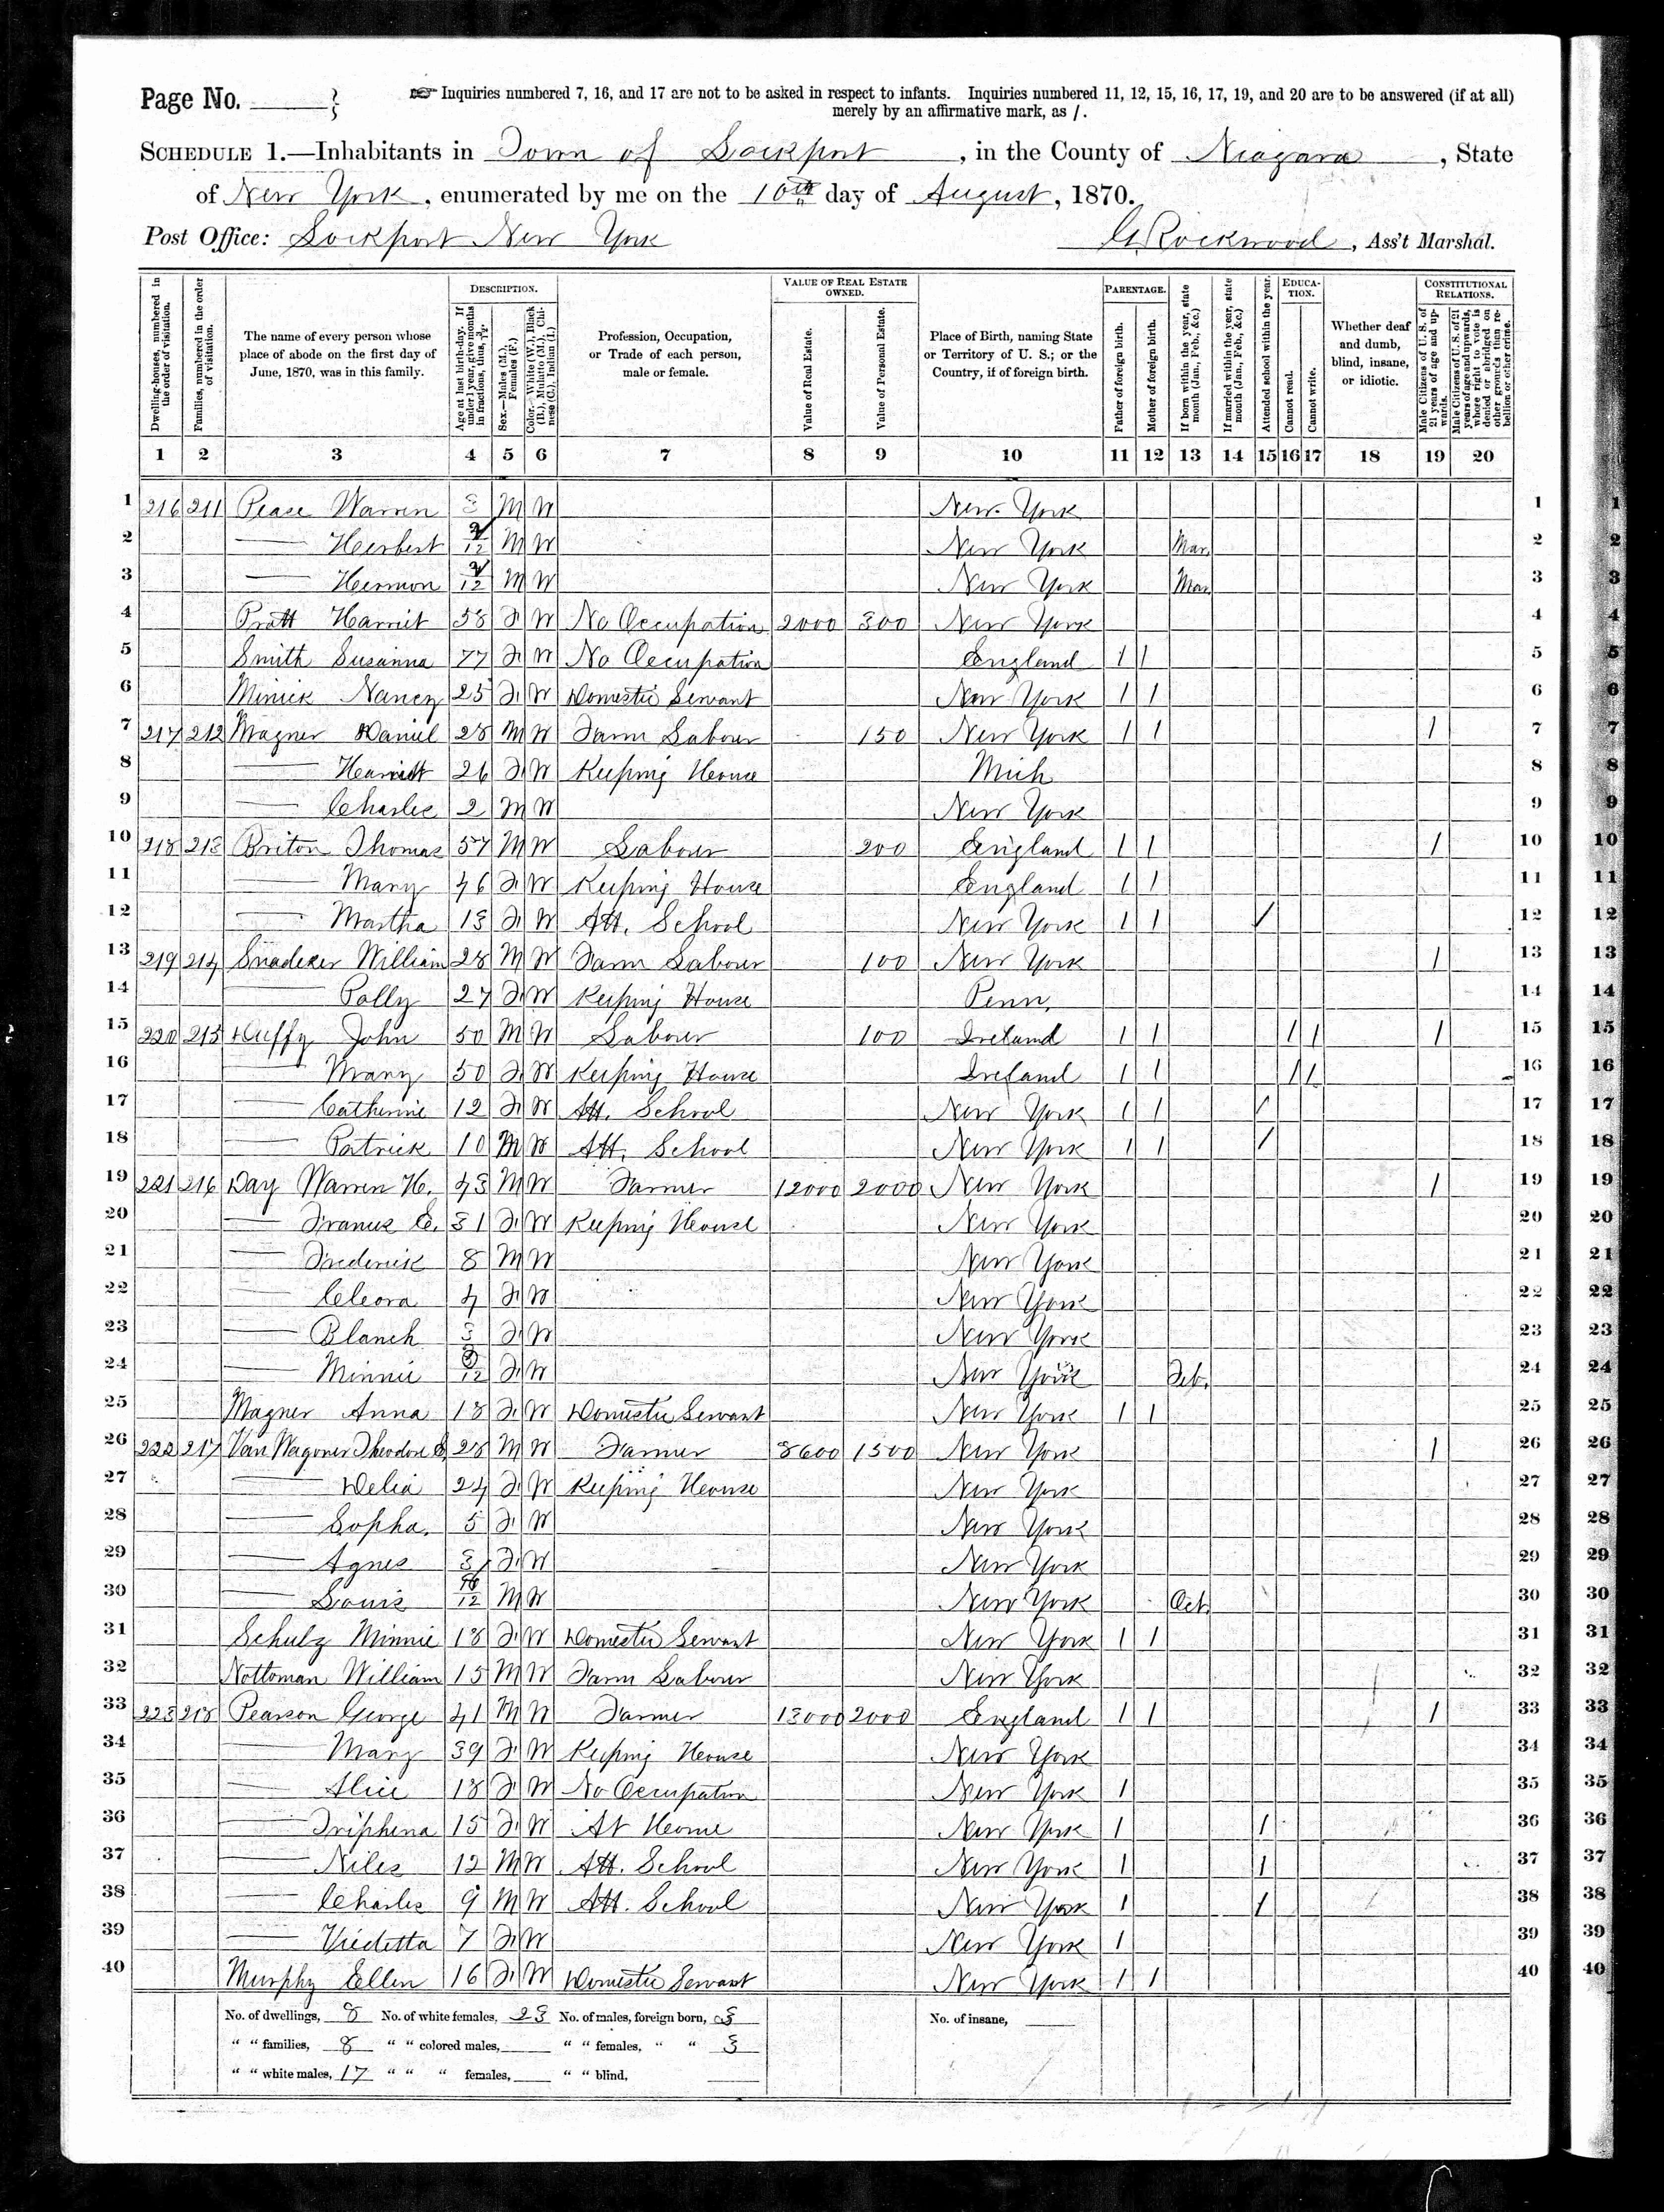 Page No.
☞ Inquiries numbered 7, 16, and 17 are not to be asked in respect to infants. Inquiries numbered 11, 12, 15, 16, 17, 19, and 20 are to be answered (if at all)
merely by an affirmative mark, as /.
SCHEDULE 1.—Inhabitants in Town of Lockport, in the County of Niagara, State
of New York, enumerated by me on the 10th day of August, 1870.
Post Office: Lockport New York
G. Rockwood, Ass't Marshal.
Dwelling-houses, numbered in the order of visitation.
Families, numbered in the order of visitation.
The name of every person whose place of abode on the first day of June, 1870, was in this family.
DESCRIPTION.
Age at last birth-day. If under 1 year, give months in fractions, thus, 3/12.
Sex.—Males (M.), Females (F.)
Color.—White (W.), Black (B.), Mulatto (M.), Chinese (C.), Indian (I.)
Profession, Occupation, or Trade of each person, male or female.
VALUE OF REAL ESTATE OWNED.
Value of Real Estate.
Value of Personal Estate.
Place of Birth, naming State or Territory of U. S.; or the Country, if of foreign birth.
PARENTAGE.
Father of foreign birth.
Mother of foreign birth.
If born within the year, state month (Jan., Feb., &c.)
If married within the year, state month (Jan., Feb., &c.)
Attended school within the year.
EDUCATION.
Cannot read.
Cannot write.
Whether deaf and dumb, blind, insane, or idiotic.
CONSTITUTIONAL RELATIONS.
Male Citizens of U. S. of 21 years of age and upwards.
Male Citizens of U. S. of 21 years of age and upwards, where right to vote is denied or abridged on other grounds than rebellion or other crime.
1 2 3 4 5 6 7 8 9 10 11 12 13 14 15 16 17 18 19 20
1 216 211 Pease Warren 3 M W New York 1 1
2 — Herbert /12 M W New York Mar 2 2
3 — Hermon /12 M W New York Mar 3 3
4 Pratt Harriet 58 F W No Occupation 2000 300 New York 4 4
5 Smith Susanna 77 F W No Occupation England 1 1 5 5
6 Minick Nancy 25 F W Domestic Servant New York 1 1 6 6
7 217 212 Magner Daniel 28 M W Farm Labour 150 New York 1 1 1 7 7
8 — Harriet 26 F W Keeping House Mich 8 8
9 — Charles 2 M W New York 9 9
10 218 213 Briton Thomas 57 M W Labour 200 England 1 1 1 10 10
11 — Mary 46 F W Keeping House England 1 1 11 11
12 — Martha 13 F W Att. School New York 1 1 / 12 12
13 219 214 Snadeker William 28 M W Farm Labour 100 New York 1 13 13
14 — Polly 27 F W Keeping House Penn. 14 14
15 220 215 Duffy John 50 M W Labour 100 Ireland 1 1 1 1 1 15 15
16 — Mary 50 F W Keeping House Ireland 1 1 1 1 16 16
17 — Catherine 12 F W Att. School New York 1 1 / 17 17
18 — Patrick 10 M W Att. School New York 1 1 / 18 18
19 221 216 Day Warren H. 43 M W Farmer 12000 2000 New York 1 19 19
20 — Frances E. 31 F W Keeping House New York 20 20
21 — Frederick 8 M W New York 21 21
22 — Cleora 4 F W New York 22 22
23 — Blanch 3 F W New York 23 23
24 — Minnie 3/12 F W New York Feb. 24 24
25 Magner Anna 18 F W Domestic Servant New York 1 1 25 25
26 222 217 Van Wagoner Theodore S. 28 M W Farmer 8600 1500 New York 1 26 26
27 — Delia 24 F W Keeping House New York 27 27
28 — Sopha. 5 F W New York 28 28
29 — Agnes 3 F W New York 29 29
30 — Louis /12 M W New York Oct. 30 30
31 Schulz Minnie 18 F W Domestic Servant New York 1 1 31 31
32 Nottoman William 15 M W Farm Labour New York 32 32
33 223 218 Pearson George 41 M W Farmer 13000 2000 England 1 1 1 33 33
34 — Mary 39 F W Keeping House New York 34 34
35 — Alice 18 F W No Occupation New York 1 35 35
36 — Triphena 15 F W At Home New York 1 1 36 36
37 — Niles 12 M W Att. School New York 1 1 37 37
38 — Charles 9 M W Att. School New York 1 1 38 38
39 — 7 F W New York 1 39 39
40 Murphy Ellen 16 F W Domestic Servant New York 1 1 40 40
No. of dwellings, 8 No. of white females, 23 No. of males, foreign born, 3 No. of insane,
" " families, 8 " " colored males, " " females, " " 3
" " white males, 17 " " " females, " " blind,